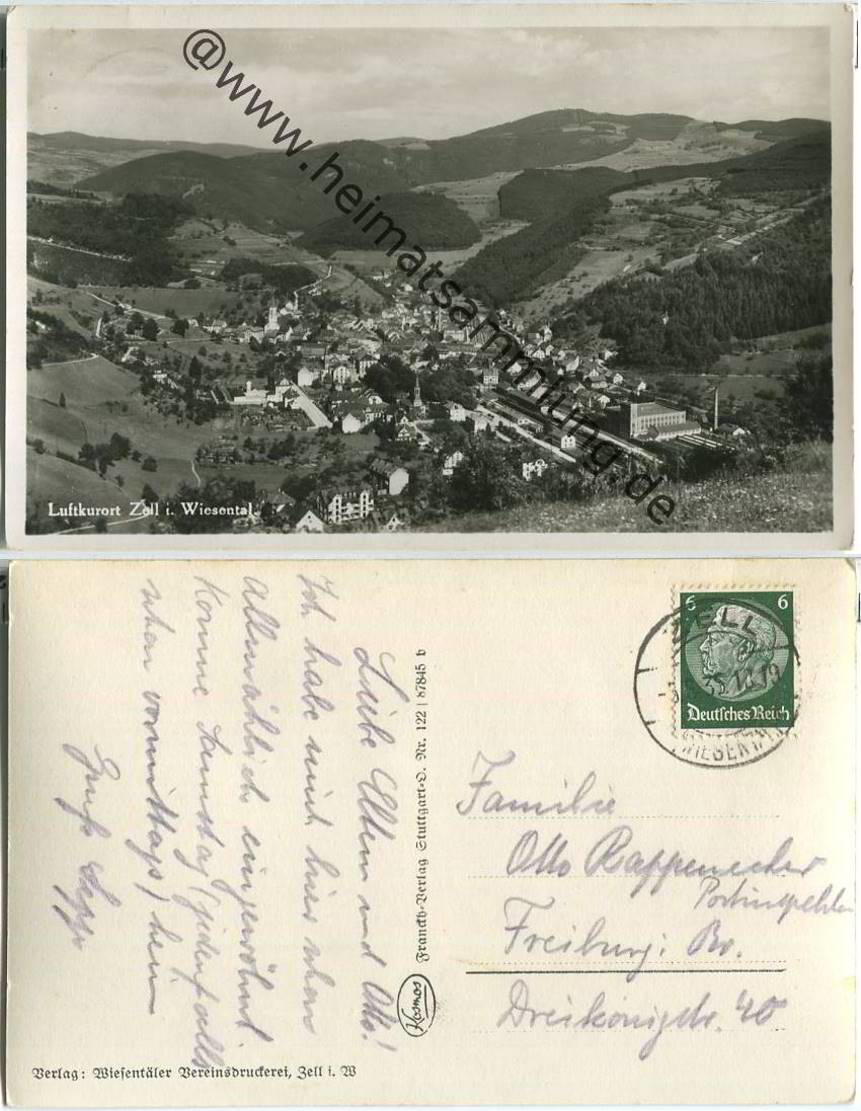 @www.heimatsammlung.de
Luftkurort Zell i. Wiesental
Liebe Eltern und Otto!
Ich habe mich hier schon
allmählich eingewöhnt
Komme Samstag (jedenfalls
schon vormittags) heim
Gruß Sepp
Franckh-Verlag Stuttgart-O. Nr. 122 | 87845 b
Kosmos
6 6
Deutsches Reich
ZELL
WIESENTAL
Familie
Otto Rappenecker
Freiburg i. Br.
Dreikönigstr. 40
Verlag: Wiesentäler Vereinsdruckerei, Zell i. W